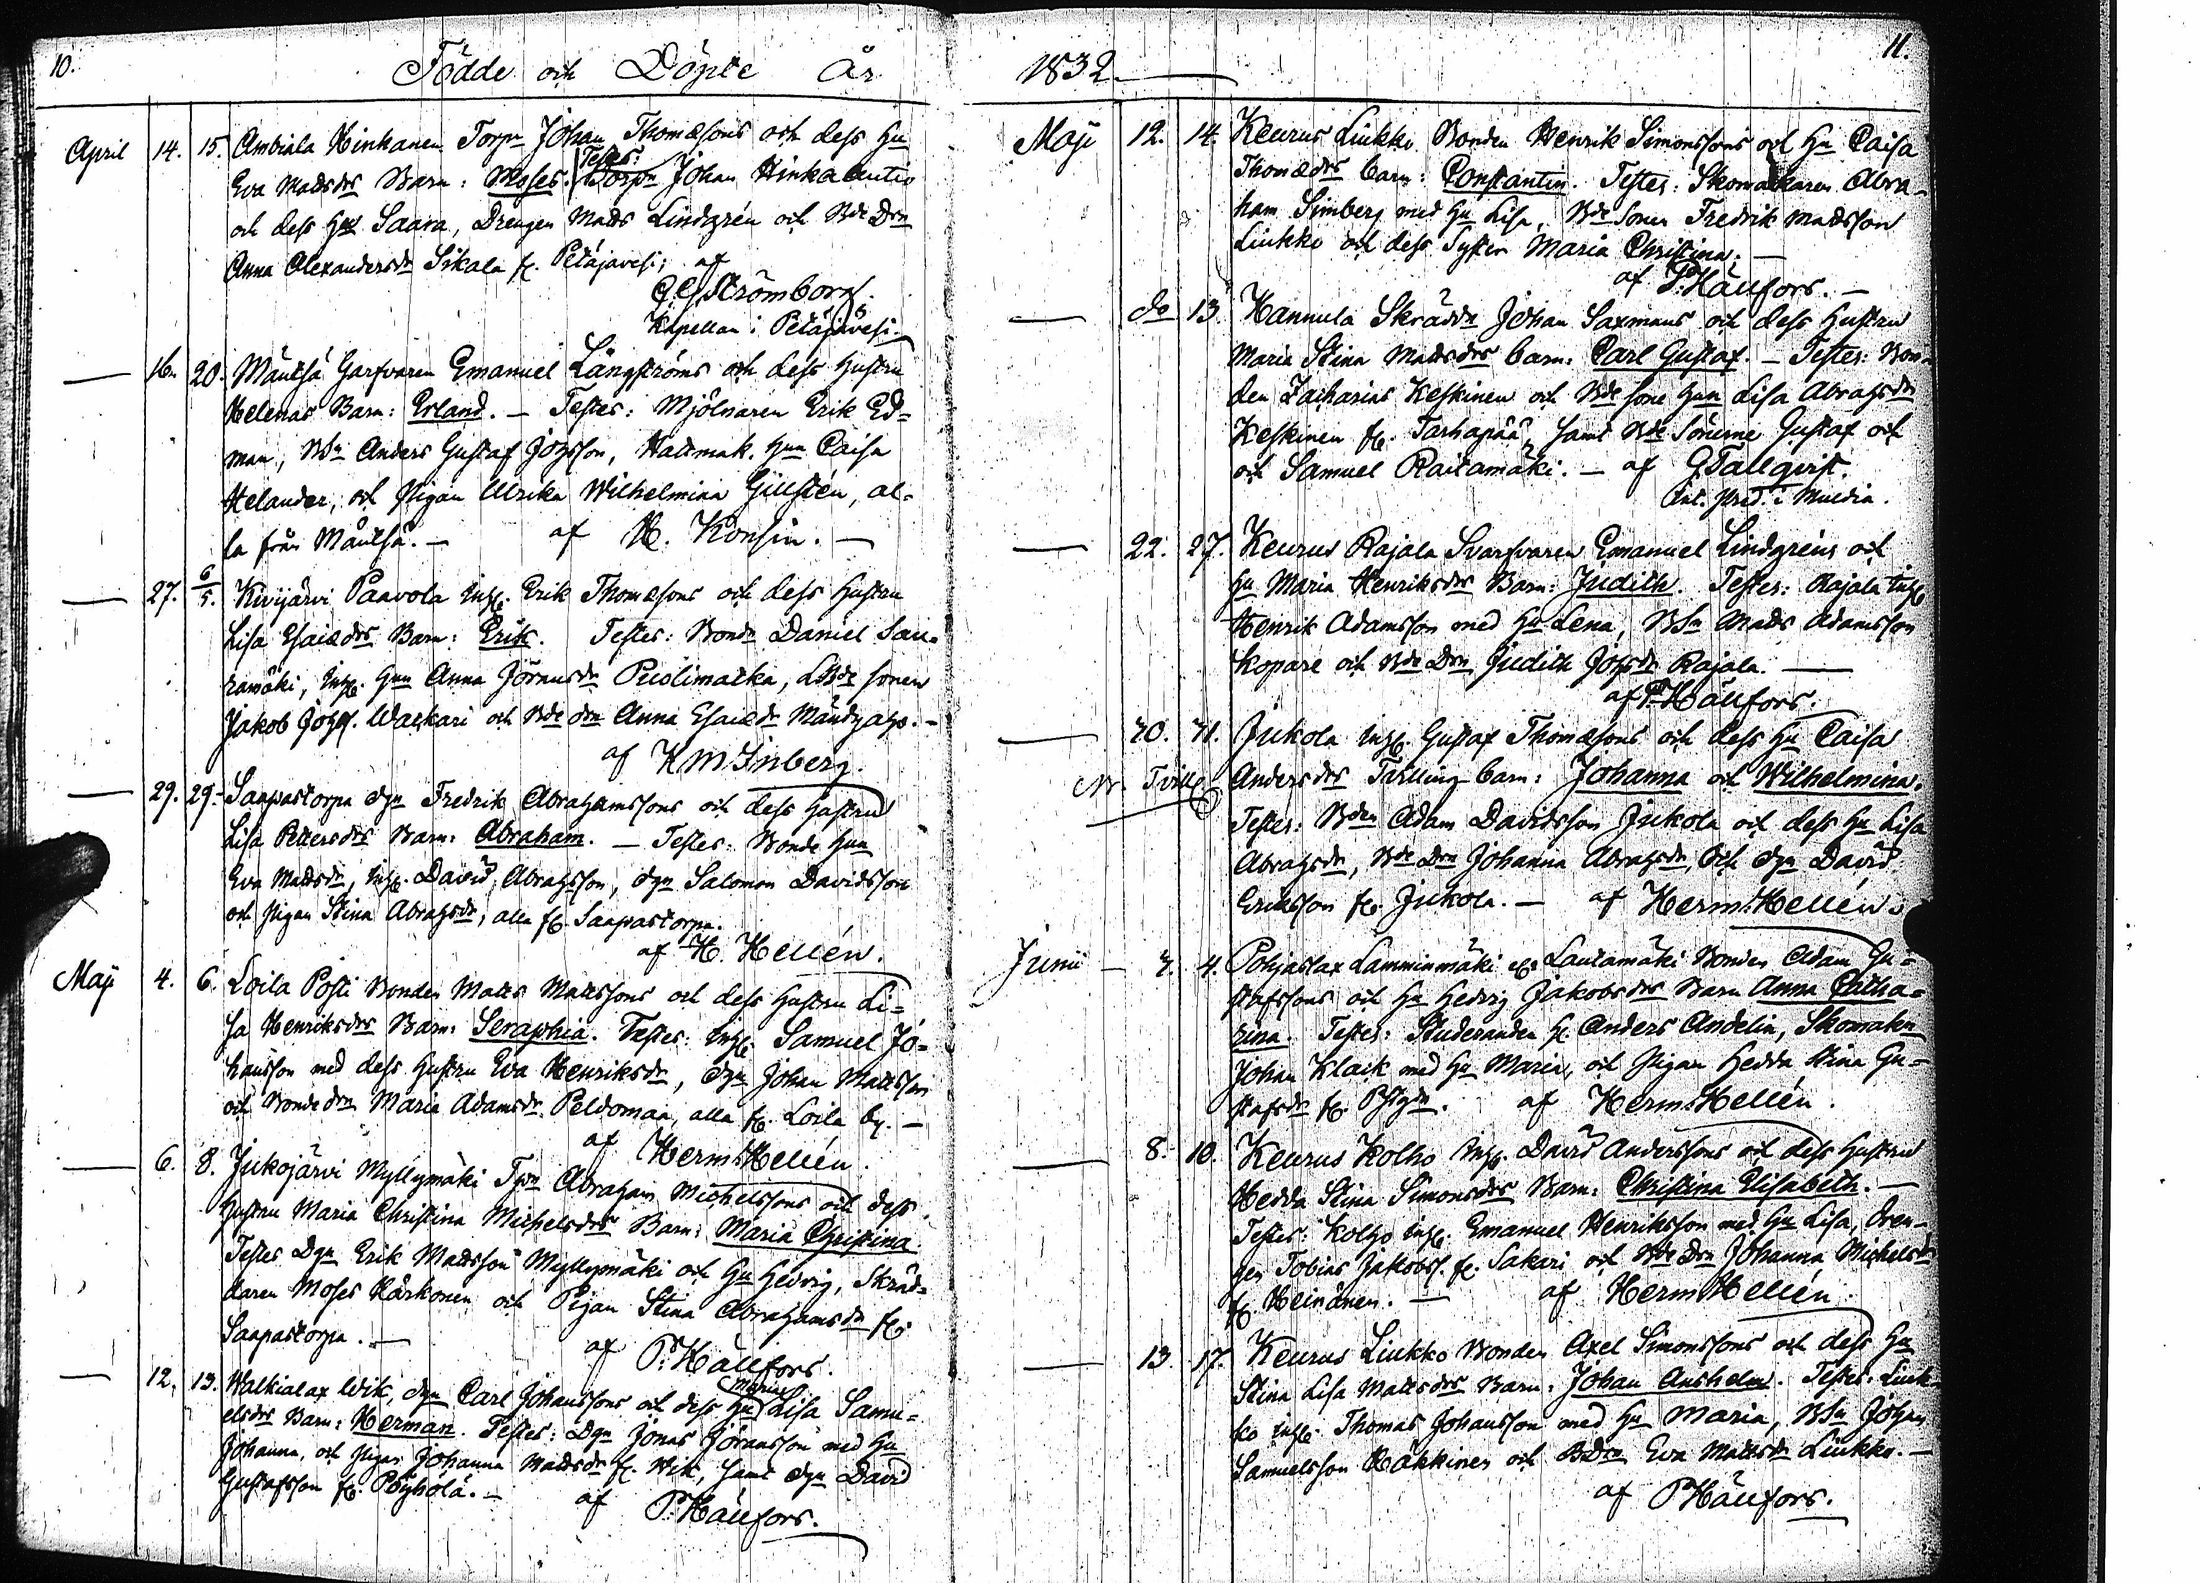 10.
Födde och Döpte År
April 14. 15. Ambiala Hinkanen Torpn Johan Thomæsons och dess Hu
Eva Matsdrs Barn: Moses. Testes: Torpn Johan Hinkalautio
och dess Hu Saara, Drengen Matts Lindgrén och Bde Drn
Anna Alexandersdr Sikala fr. Petäjävesi; af
G. G. Strömborg.
Kapellan i Petäjävesi.
16. 20. Mäntsä Garfvaren Emanuel Långströms och dess hustru
Helenas Barn: Erland. — Testes: Mjölnaren Erik Ed-
man, BSn Anders Gustaf Johsson, Hattmak. Hun Caisa
Helander, och Pigan Ulrika Wilhelmina Gillstén, al-
la från Mäntsä. — af H. Konsin. —
27. 6/5. Kivijärvi Paavola Inhs. Erik Thomæsons och dess Hustru
Lisa Esaiædrs Barn: Erik. Testes: Bondn Daniel
ramäki, Inhs. Hun Anna Jöransdr Puolimatka, LBde sonen
Jakob Johss. Waskari och Bde drn Anna Esaiædr Mändyaho. —
af K M Inberg.
29. 29. Saapastorpa dgn Fredrik Abrahamssons och dess hustru
Lisa Pettersdrs Barn: Abraham. — Testes: Bonde Hun
Eva Mattsdr, Inhs. David Abrahsson, dgn Salomon Davidsson
och Pigan Stina Abrahsdr, alla fr. Saapastorpa.
af H. Hellén.
Maji 4. 6. Loila Posti Bonden Matts Mattssons och dess Hustru Li-
sa Henriksdrs Barn: Seraphia. Testes: Inhs. Samuel Jo-
hansson med dess Hustru Eva Henriksdr, dgn Johan Mattsson
och Bonde drn Maria Adamsdr Peldomaa, alla fr. Loila by. —
af Herm. Hellén.
6. 8. Jukojärvi Myllymäki Tpn Abraham Michelssons och dess
Hustru Maria Christina Michelsdrs Barn: Maria Christina
Testes Dgn Erik Mattsson Myllymäki och Hu Hedvig, Skräd-
daren Moses Kärkonen och Pigan Stina Abrahamsdr fr.
Saapastorpa. — af P. Hällfors.
12. 13. Walkialax Wik, dgn Carl Johanssons och dess Hu Maria Lisa Samu-
elsdrs Barn: Herman. Testes: Dgn Jonas Jöransson med Hu
Johanna, och Pigan Johanna Mattsdr fr. Wik, samt dgn David
Gustafsson fr. Pöyhölä. — af P. Hällfors.
1832 — 11.
Maji 12. 14. Keurus Liukko Bonden Henrik Simonssons och Hu Caisa
Thomædrs barn: Constantin. Testes: Skomakaren Abra-
ham Simberg med Hu Lisa, Bde Sonen Fredrik Mattsson
Liukko och dess Syster Maria Christina. —
af P. Hällfors. —
do 13. Hannula Skräddn Johan Saxmans och dess Hustru
Maria Stina Mattsdrs barn: Carl Gustaf. — Testes: Bon-
den Zacharias Keskinen och Bde sone Hun Lisa Abrahsdr
Keskinen fr. Tarhapää, samt Bde Sönerne Gustaf och
och Samuel Raitamäki. — af G. Tallqvist.
Ant. pred. i Muldia.
22. 27. Keurus Rajala Svarfvaren Emanuel Lindgréns och
Hu Maria Henriksdrs Barn: Judith. Testes: Rajala Inhs
Henrik Adamsson med Hu Lena, BSn Matts Adamsson
Kopare och Bde Drn Judith Johsdr Rajala. —
af P. Hällfors.
30. 31. Jukola Inhs. Gustaf Thomæsons och dess Hu Caisa
Tvill Andersdrs Tvilling barn: Johanna och Wilhelmina.
Testes: Bden Adam Davidsson Jukola och dess Hu Lisa
Abrahsdr, Bde Drn Johanna Abrahsdr, och dgn David
Eriksson fr. Jukola. — af Herm. Hellén.
Junii 3. 4. Pohjaslax Lamminmäki el. Lautamäki Bonden Adam Gu-
stafssons och Hu Hedvig Jakobsdrs Barn Anna Catha-
rina. Testes: Studeranden Hr. Anders Andelin, Skomakn
Johan Klack med Hu Maria, och Pigan Hedda Stina Gu-
stafsdr fr. Pstgdn. af Herm. Hellén.
8. 10. Keurus Kolho Inhs. David Anderssons och dess Hustru
Hedda Stina Simonsdrs Barn: Christina Elisabeth. —
Testes: Kolho Inhs. Emanuel Henriksson med Hu Lisa, Dren-
gen Tobias Jakobss. fr. Sakari och Bde Drn Johanna Michelsdr
fr. Heinänen. — af Herm. Hellén.
13. 17. Keurus Liukko Bonden Axel Simonssons och dess Hu
Stina Lisa Mattsdrs Barn: Johan Anshelm. Testes: Liuk-
ko Inhs. Thomas Johansson med Hu Maria, BSn Johan
Samuelsson Häkkinen och BDrn Eva Mattsdr Liukko. —
af P. Hällfors.